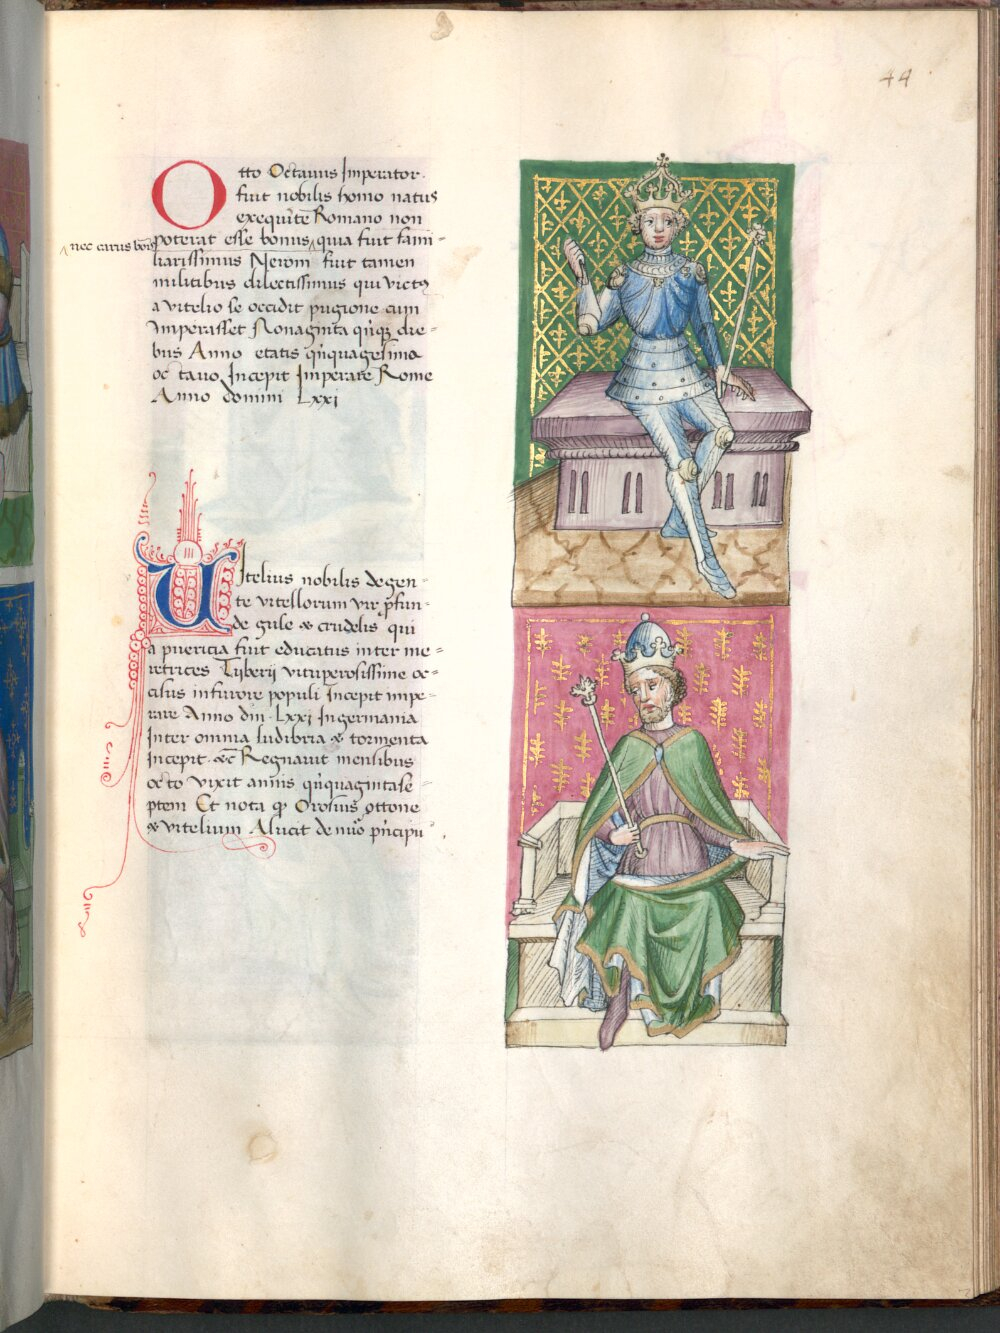 44
Otto Octauus Imperator.
fuit nobilis homo natus
ex equite Romano non
poterat esse bonus quia fuit fami-
nec carus bonis
liarissimus Neroni fuit tamen
militibus dilectissimus qui victus
a vitelio se occidit pugione cum
Imperasset Nonaginta quinque die-
bus Anno etatis quinquagesimo
octauo Incepit Imperare Rome
Anno domini Lxxj
Vitelius nobilis de gen-
te vitellorum vir profun-
de gule & crudelis qui
a puericia fuit educatus inter me-
retrices Tyberij vituperosissime oc-
cisus in furore populi Incepit impe-
rare Anno dni Lxxj In germania
Inter omnia ludibria & tormenta
Incepit &c Regnauit mensibus
octo vixit annis quinquagintase-
ptem Et nota quod Orosius ottone
& vitelium de principu